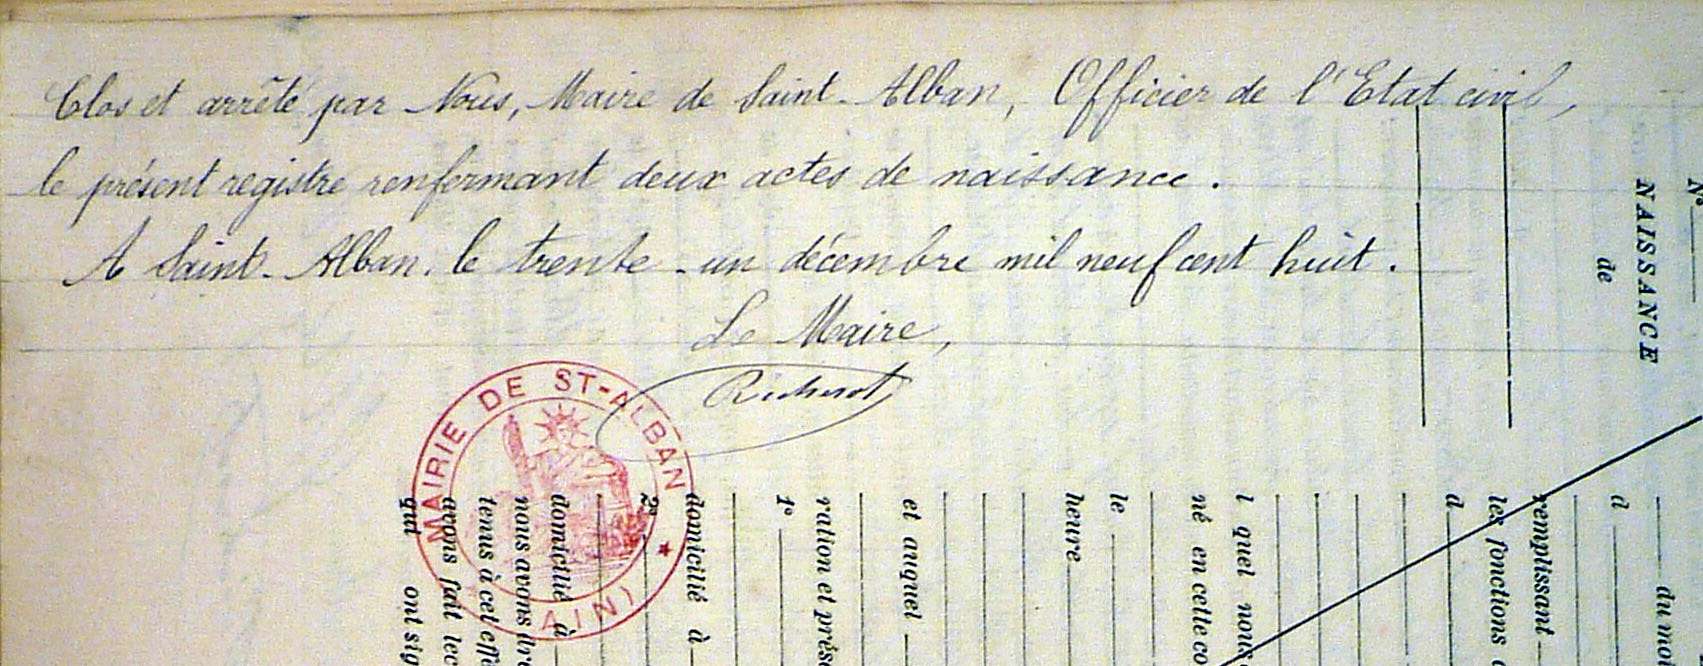 Clos et arrêté par Nous, Maire de Saint-Alban, Officier de l'Etat civil,
le présent registre renfermant deux actes de naissance.
A Saint-Alban, le trente-un décembre mil neuf cent huit.
Le Maire,
MAIRIE DE ST-ALBAN
★ (AIN)
N°
NAISSANCE
de
du moi
d
remplissant
les fonctions
d
l quel nous
né en cette co
le
heure
et auquel
ration et prése
1°
domicilié à
2°
domicilié à
nous avons dre
tenus à cet effe
avons fait lec
qui ont sig